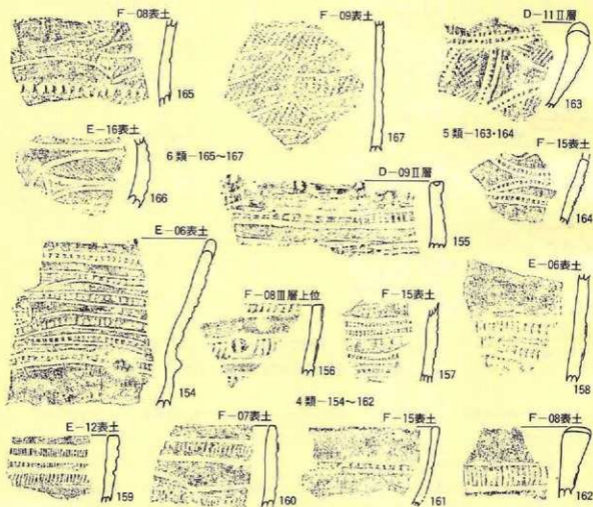 F-08表土
165
F-09表土
167
D-11Ⅱ層
163
E-16表土
166
6類-165~167
5類-163・164
F-15表土
164
D-09Ⅱ層
155
E-06表土
154
F-08Ⅲ層上位
156
F-15表土
157
E-06表土
158
4類-154~162
E-12表土
159
F-07表土
160
F-15表土
161
F-08表土
162